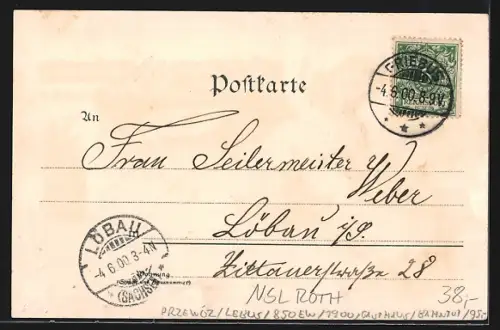 Postkarte
-4.6.00.8-9V.
An
Frau Seilermeister
Weber
Löbau i/S.
Zittauerstraße 28
LÖBAU
-4.6.00 3-4N
(SACHS.)
NSL ROTH
38,-
PRZEWÓZ/LEBUS/850EW/1900/GASTHAUS/BAHNHOF/95